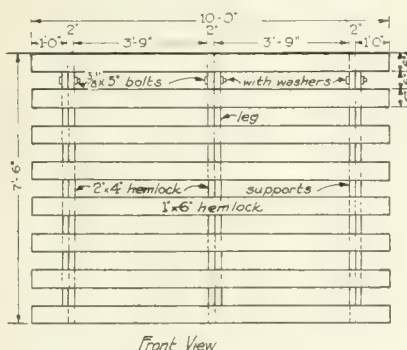 10'-0"
2" 2" 2"
1'-0" 3'-9" 3'-9" 1'-0"
3/8" x 5" bolts with washers
leg
7'-6"
2" x 4" hemlock supports
1" x 6" hemlock
Front View